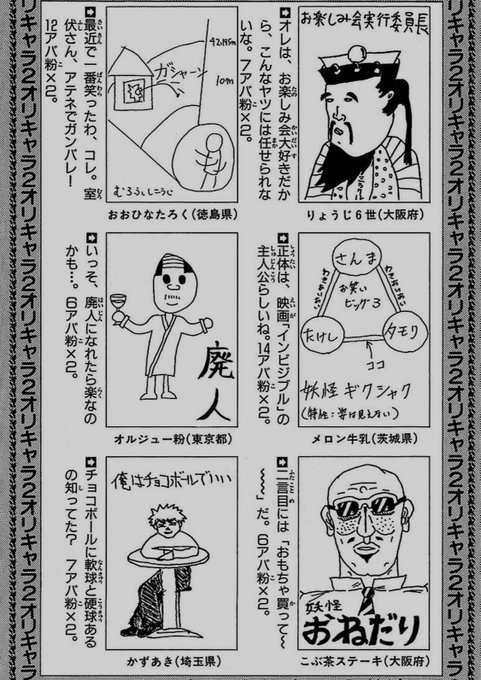 オリキャラ2オリキャラ2オリキャラ2オリキャラ2オリキャラ2オリキャラ
お楽しみ会実行委員長
りょうじ6世(大阪府)
オレは、お楽しみ会大好きだか
ら、こんなヤツには任せられな
いな。7アバ粉×2。
42.195m
10m
ガシャーン
むろふしこうじ
おおひなたろく(徳島県)
最近で一番笑ったわ、コレ。室
伏さん、アテネでガンバレー!
12アバ粉×2。
さんま
お笑い
ビッグ3
たけし
タモリ
ココ
妖怪 ギクシャク
(特徴:姿は見えない)
メロン牛乳(茨城県)
正体は、映画「インビジブル」の
主人公らしいね。14アバ粉×2。
廃人
オルジュー粉(東京都)
いっそ、廃人になれたら楽なの
かも…。6アバ粉×2。
妖怪
おねだり
こぶ茶ステーキ(大阪府)
二言目には「おもちゃ買って〜
〜〜」だ。6アバ粉×2。
俺はチョコボールでいい
かずあき(埼玉県)
チョコボールに軟球と硬球ある
の知ってた? 7アバ粉×2。
オリキャラ2オリキャラ2オリキャラ2オリキャラ2オリキャラ2オリキャラ